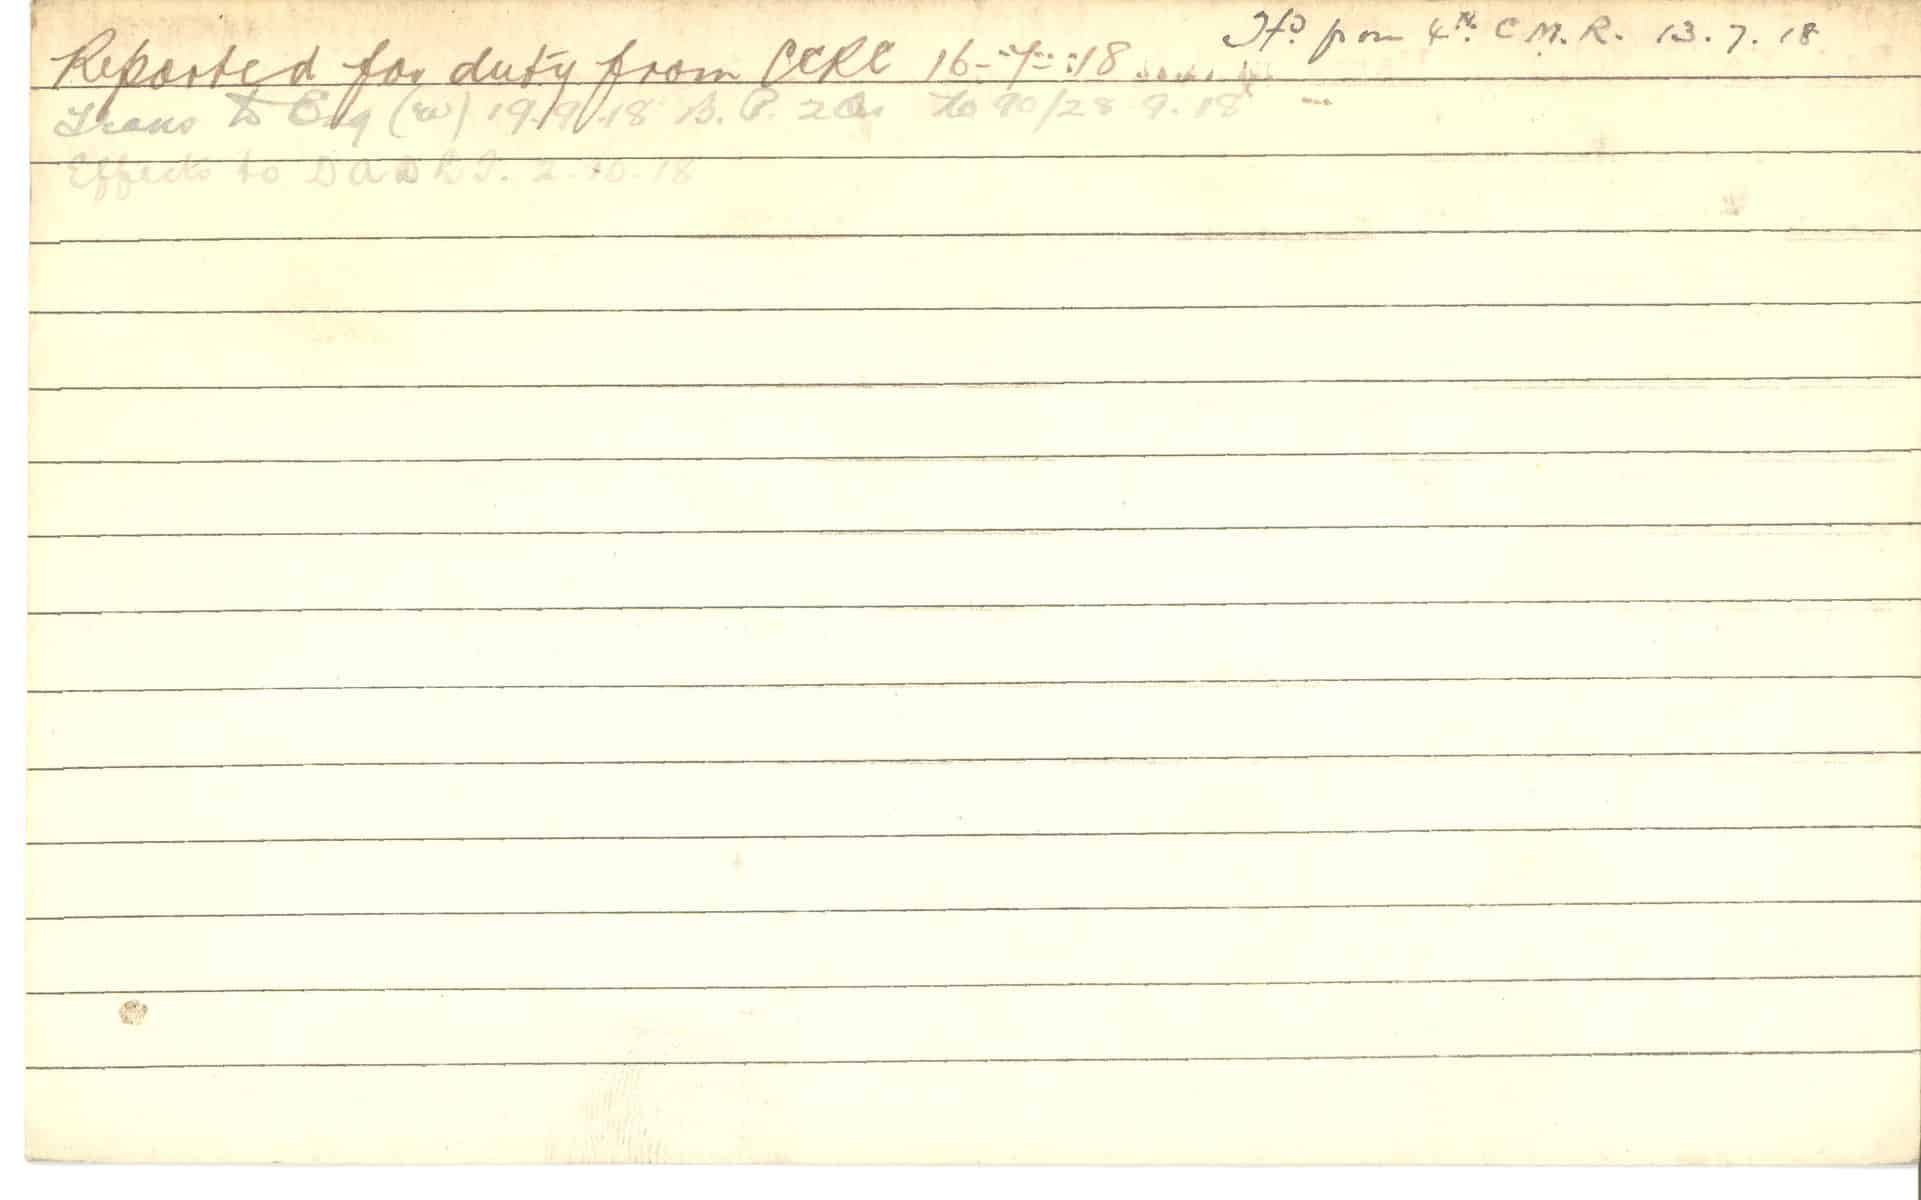 Tfd. from 4th. C.M.R. 13.7.18
Reported for duty from CCRC 16-7-18
Trans to Eng (w) 19.9.18 B.P. 2 to 90/28 9.18
Effects to DADRT. 2.10.18